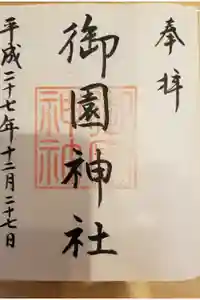 奉拝
御園神社
平成二十七年十二月二十七日